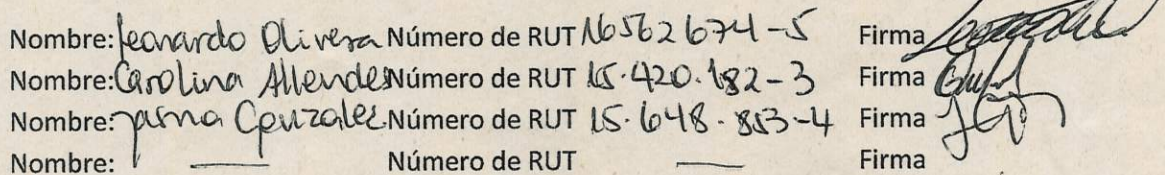 Nombre: Leonardo Olivera Número de RUT 16562674-5 Firma
Nombre: Carolina Allendes Número de RUT 15.420.182-3 Firma
Nombre: Yasna Gonzalez Número de RUT 15.648.853-4 Firma
Nombre: — Número de RUT — Firma